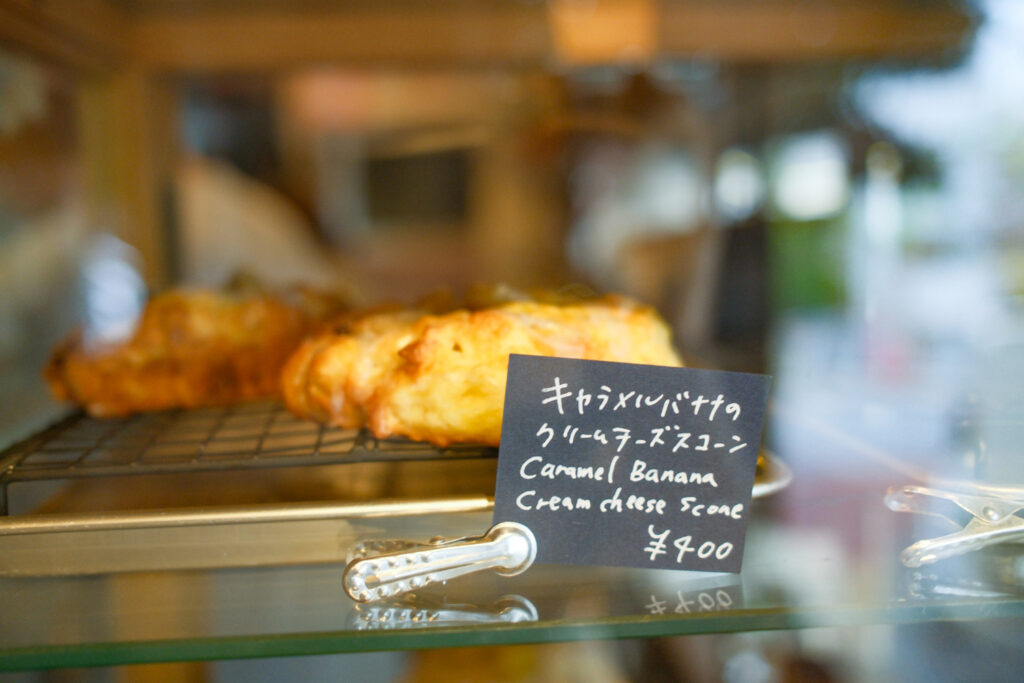 キャラメルバナナの
クリームチーズスコーン
Caramel Banana
Cream cheese scone
¥400